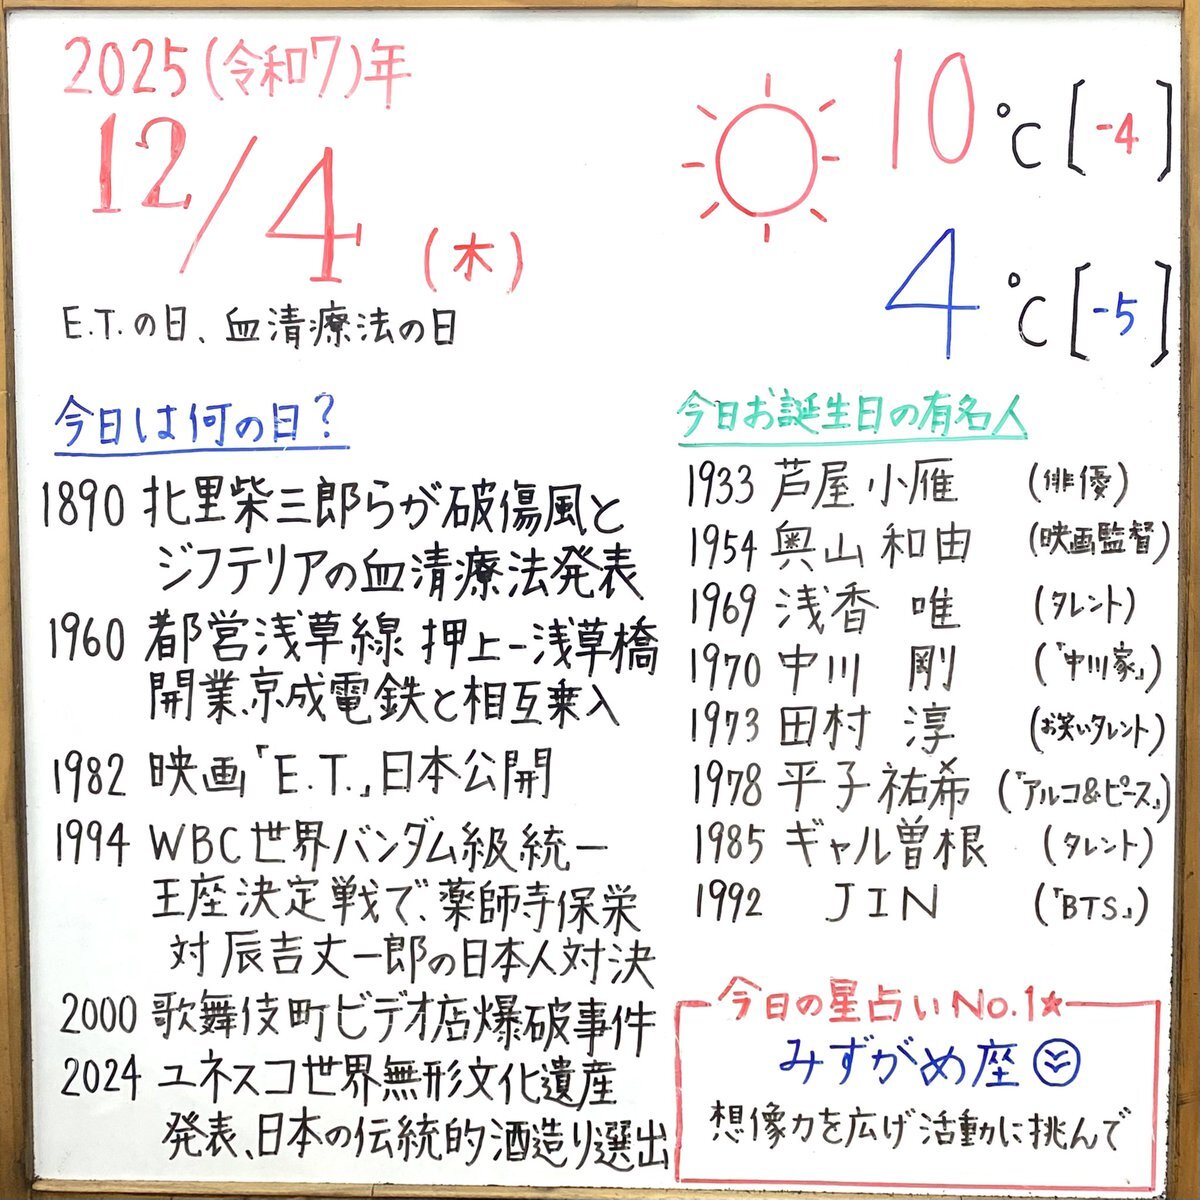 2025(令和7)年
12/4 (木)
10℃[-4]
4℃[-5]
E.T.の日、血清療法の日
今日は何の日?
1890 北里柴三郎らが破傷風と
ジフテリアの血清療法発表
1960 都営浅草線 押上-浅草橋
開業、京成電鉄と相互乗入
1982 映画「E.T.」日本公開
1994 WBC世界バンダム級統一
王座決定戦で、薬師寺保栄
対 辰吉丈一郎の日本人対決
2000 歌舞伎町ビデオ店爆破事件
2024 ユネスコ世界無形文化遺産
発表、日本の伝統的酒造り選出
今日お誕生日の有名人
1933 芦屋 小雁 (俳優)
1954 奥山 和由 (映画監督)
1969 浅香 唯 (タレント)
1970 中川 剛 (『中川家』)
1973 田村 淳 (お笑いタレント)
1978 平子 祐希 (『アルコ&ピース』)
1985 ギャル曽根 (タレント)
1992 JIN (『BTS』)
今日の星占いNo.1★
みずがめ座
想像力を広げ活動に挑んで